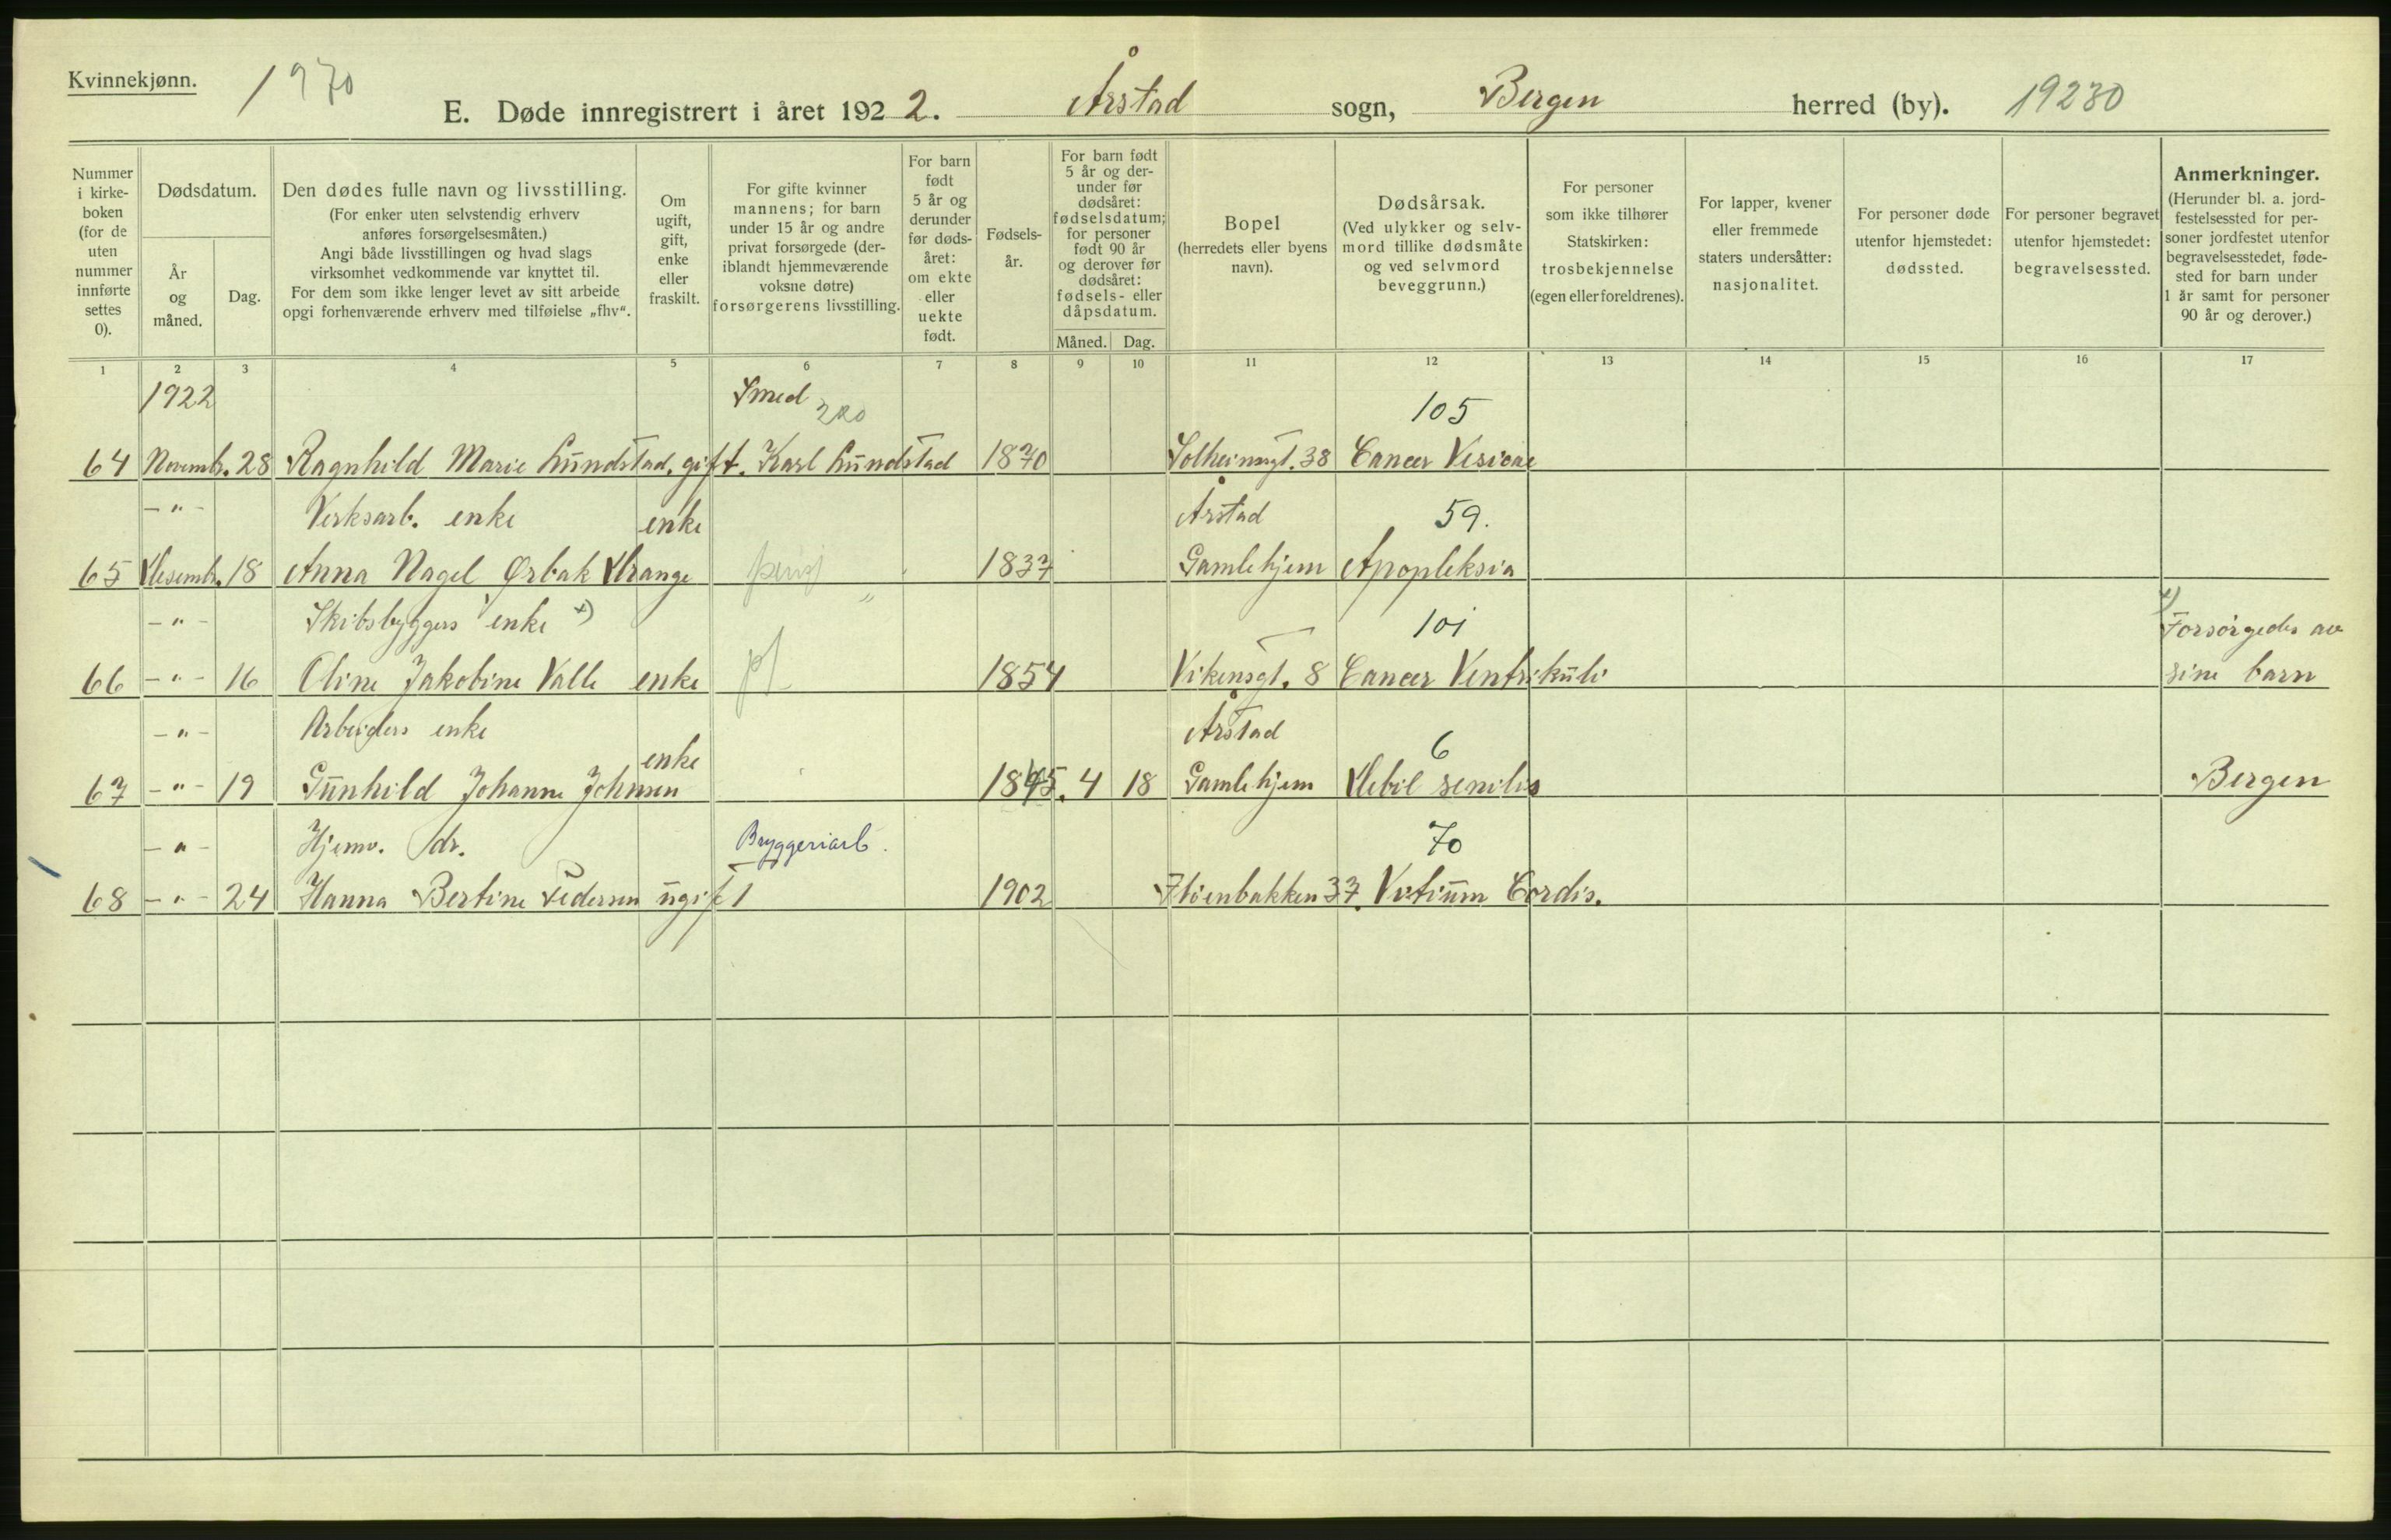 Kvinnekjønn.
1970
E. Døde innregistrert i året 1922. Årstad sogn, Bergen herred (by). 19230
Nummer i kirke-boken (for de uten nummer innførte settes 0).
Dødsdatum.
År og måned.
Dag.
Den dødes fulle navn og livsstilling.
(For enker uten selvstendig erhverv
anføres forsørgelsesmåten.)
Angi både livsstillingen og hvad slags
virksomhet vedkommende var knyttet til.
For dem som ikke lenger levet av sitt arbeide
opgi forhenværende erhverv med tilføielse „fhv“.
Om ugift, gift, enke eller fraskilt.
For gifte kvinner
mannens; for barn
under 15 år og andre
privat forsørgede (der-
iblandt hjemmeværende
voksne døtre)
forsørgerens livsstilling.
For barn født 5 år og derunder før døds-året: om ekte eller uekte født.
Fødsels-år.
For barn født
5 år og der-
under før
dødsåret:
fødselsdatum;
for personer
født 90 år
og derover før
dødsåret:
fødsels- eller
dåpsdatum.
Måned. Dag.
Bopel
(herredets eller byens
navn).
Dødsårsak.
(Ved ulykker og selv-
mord tillike dødsmåte
og ved selvmord
beveggrunn.)
For personer
som ikke tilhører
Statskirken:
trosbekjennelse
(egen eller foreldrenes).
For lapper, kvener
eller fremmede
staters undersåtter:
nasjonalitet.
For personer døde
utenfor hjemstedet:
dødssted.
For personer begravet
utenfor hjemstedet:
begravelsessted.
Anmerkninger.
(Herunder bl. a. jord-
festelsessted for per-
soner jordfestet utenfor
begravelsesstedet, føde-
sted for barn under
1 år samt for personer
90 år og derover.)
1 2 3 4 5 6 7 8 9 10 11 12 13 14 15 16 17
1922 Smed 220 105
64 Novembr. 28 Ragnhild Marie Lundstad, gift. Karl Lundstad 1870 Solheimsgt. 38 Cancer Vesicae
— " — Verksarb. enke enke Årstad 59.
65 Desembr. 18 Anna Nagel Ørbak Drange 1837 Gamlehjem Apopleksia
— " — Skibsbyggers enke x) 101 x) Forsørgedes av
66 — " — 16 Oline Jakobine Valle enke 1854 Vikensgt. 8 Cancer Ventrikuli sine barn
— " — Arbeiders enke enke Årstad 6
67 — " — 19 Gunhild Johanne Johnsen 1845. 4 18 Gamlehjem Debil senilis Bergen
— " — Hjemv. dr. Bryggeriarb. 70
68 — " — 24 Hanna Bertine Pedersen ugift 1902 Fløenbakken 37. Vitium Cordis.